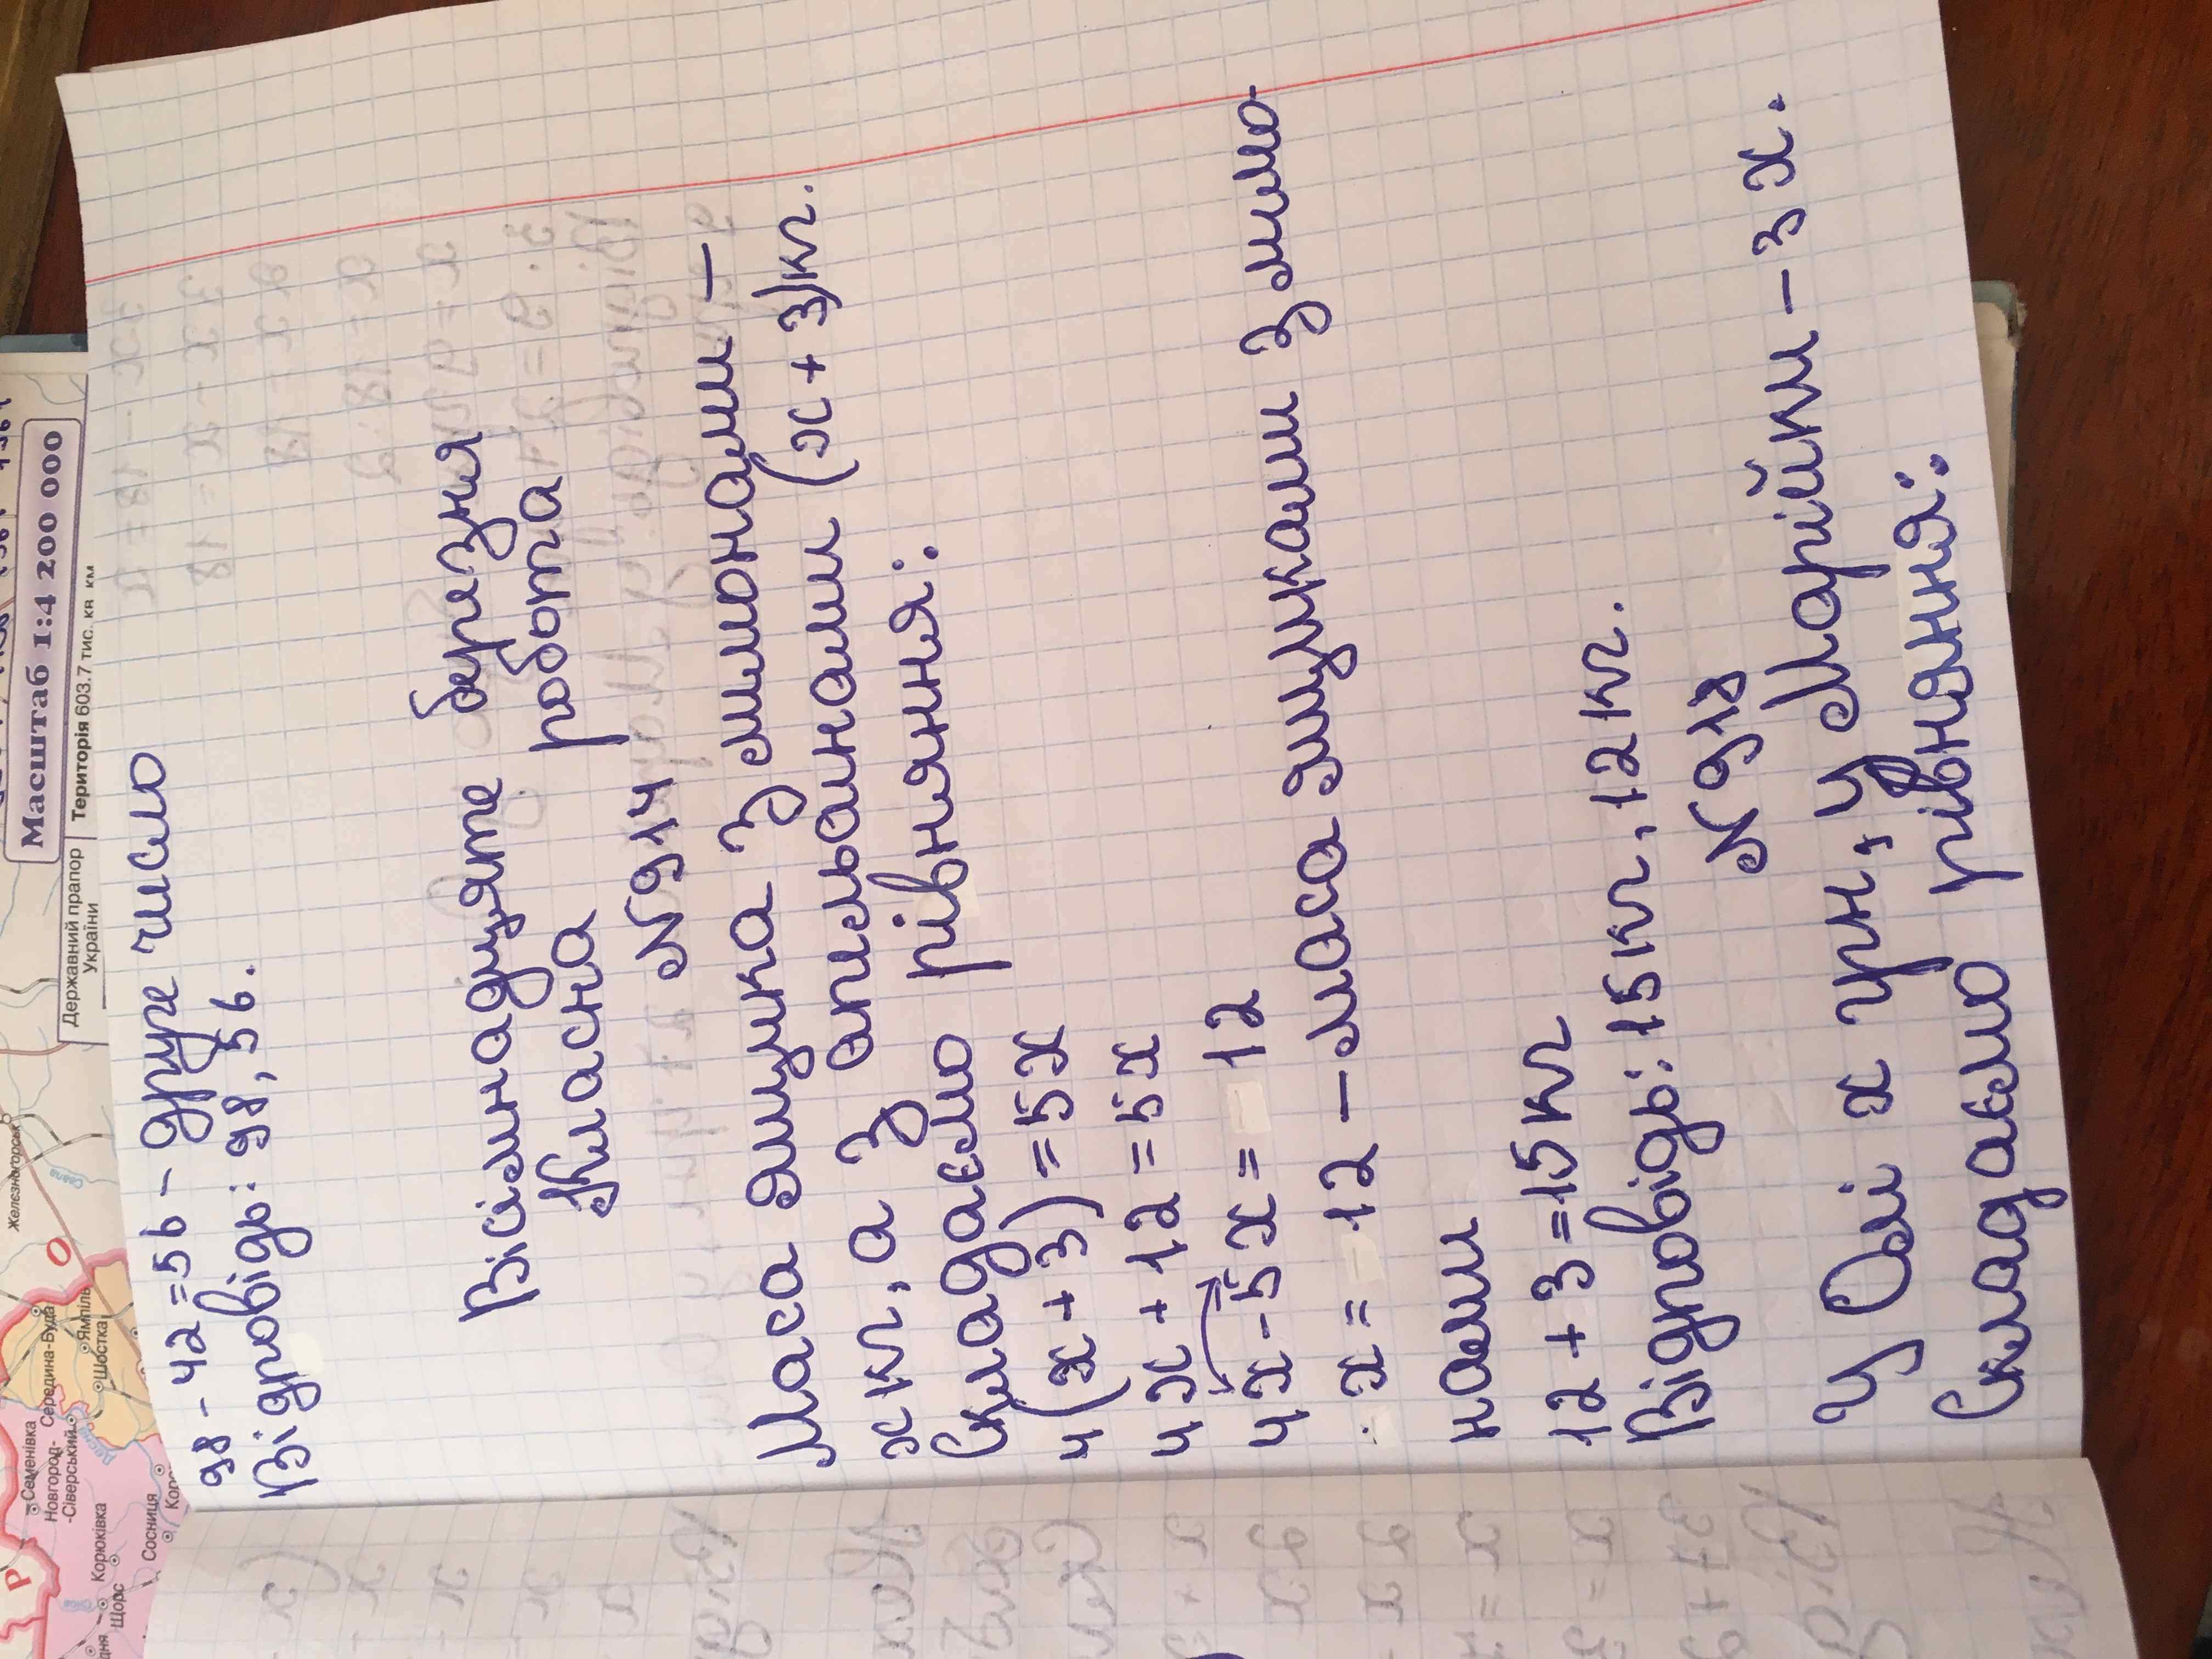 98 - 42 = 56 - друге число
Відповідь: 98, 56.
Вісімнадцяте березня
Класна робота
№ 914
Маса ящика з лимонами -
х кг, а з апельсинами (х + 3) кг.
Складаємо рівняння:
4(х + 3) = 5х
4х + 12 = 5х
4х - 5х = 12
х = 12 - маса ящикаши з лимо-
нами
12 + 3 = 15 кг
Відповідь: 15 кг, 12 кг.
№ 918
У Олі х грн, у Марійки - 3х.
Складаємо рівняння:
Масштаб 1:4 200 000
Державний прапор
України
Територія 603.7 тис. кв км
Железногорськ
Семенівка
Новгород-
-Сіверський
Середина-Буда
Ямпіль
Шостка
Корюківка
Щорс
Сосниця
Р
О